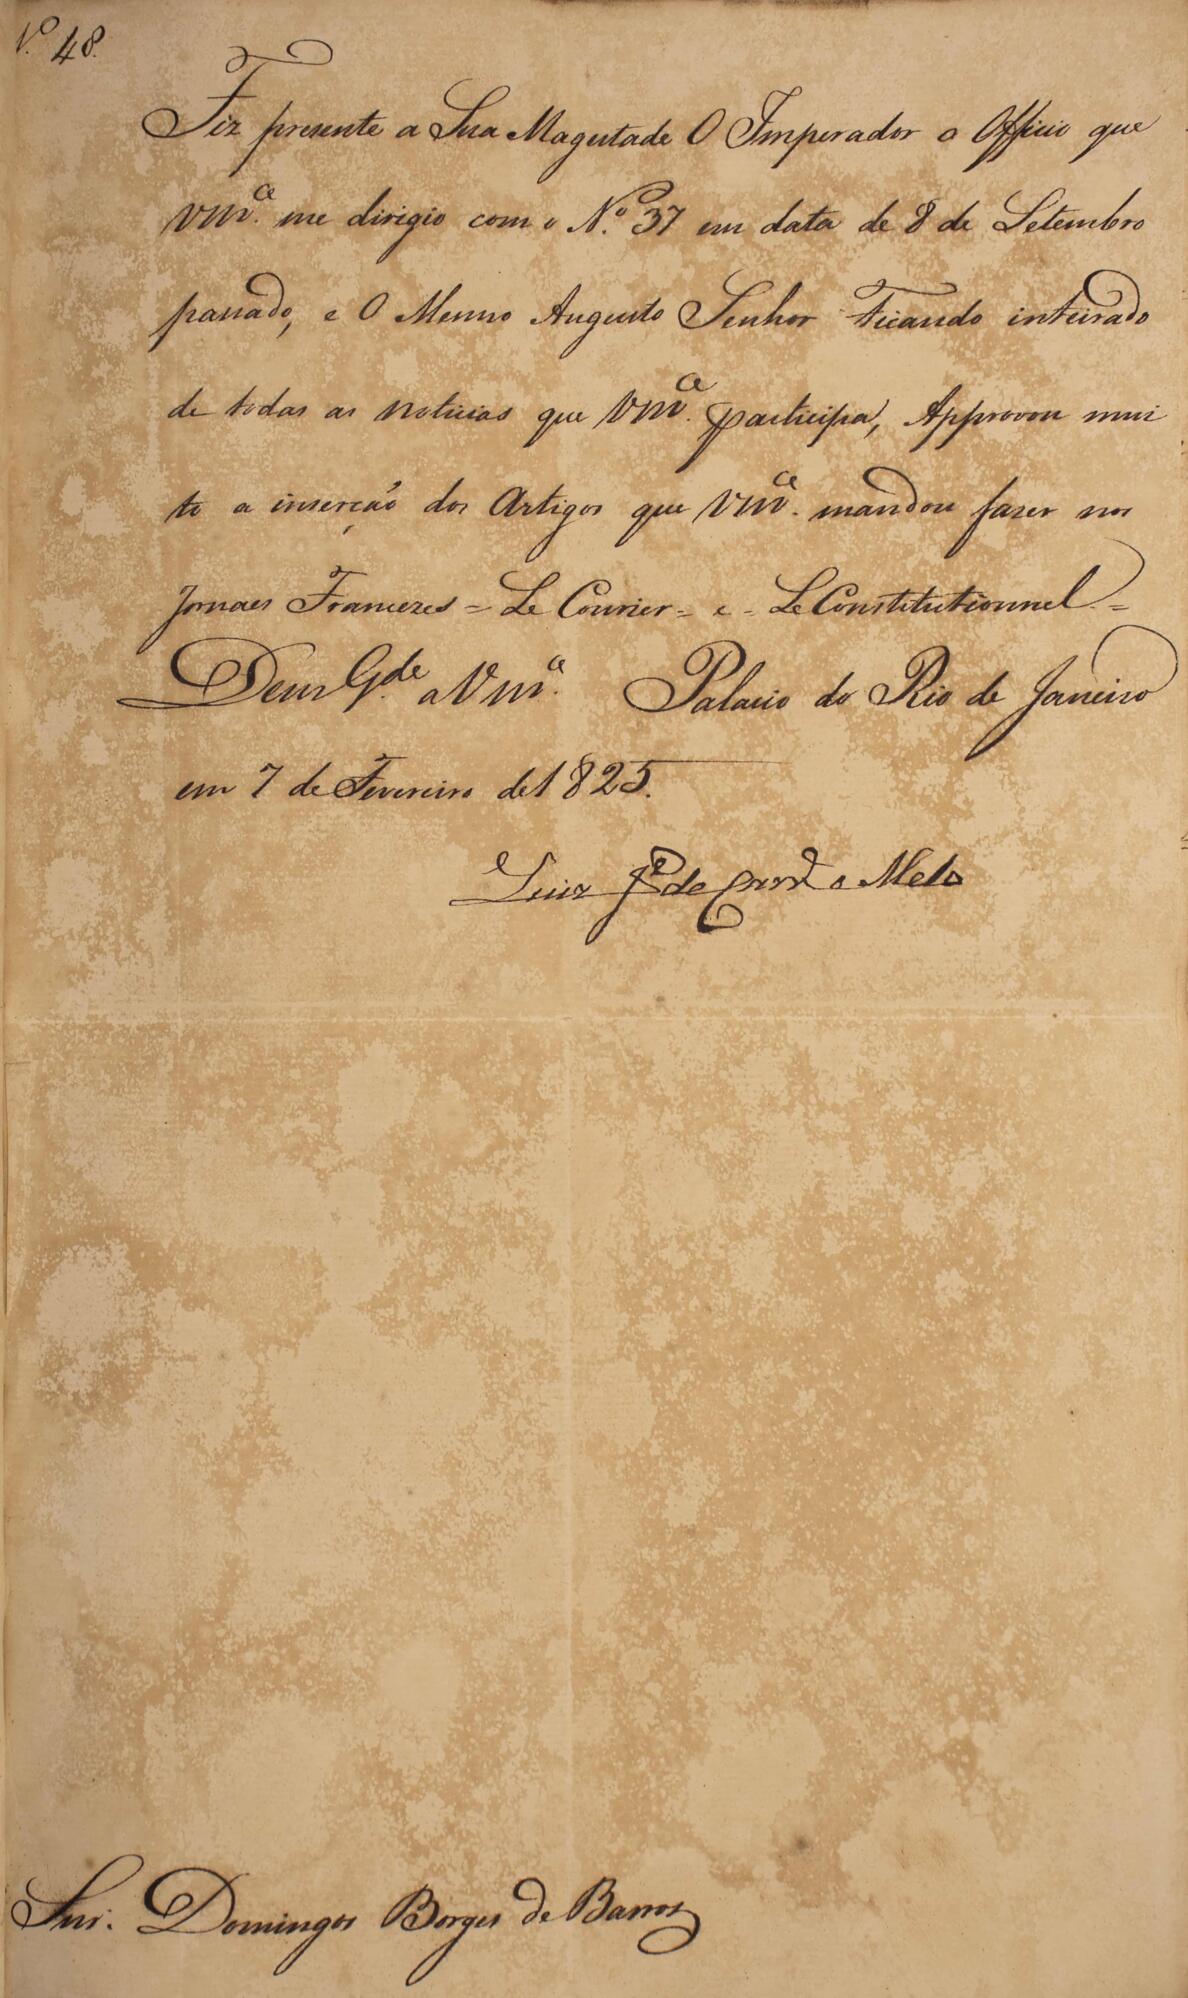 N.º 48.
Fiz presente a Sua Magestade O Imperador o Officio que
Vm.ce me dirigio com o N.º 37 em data de 8 de Setembro
passado, e O Mesmo Augusto Senhor Ficando inteirado
de todas as noticias que Vm.ce participa, Approvou mui
to a inserção dos Artigos que Vm.ce mandou fazer nos
Jornaes Francezes = Le Courier = e = Le Constitutionnel =
Deus G.de a Vm.ce Palacio do Rio de Janeiro
em 7 de Fevereiro de 1825.
Luiz Jé de Carv.o e Mello
Snr. Domingos Borges de Barros